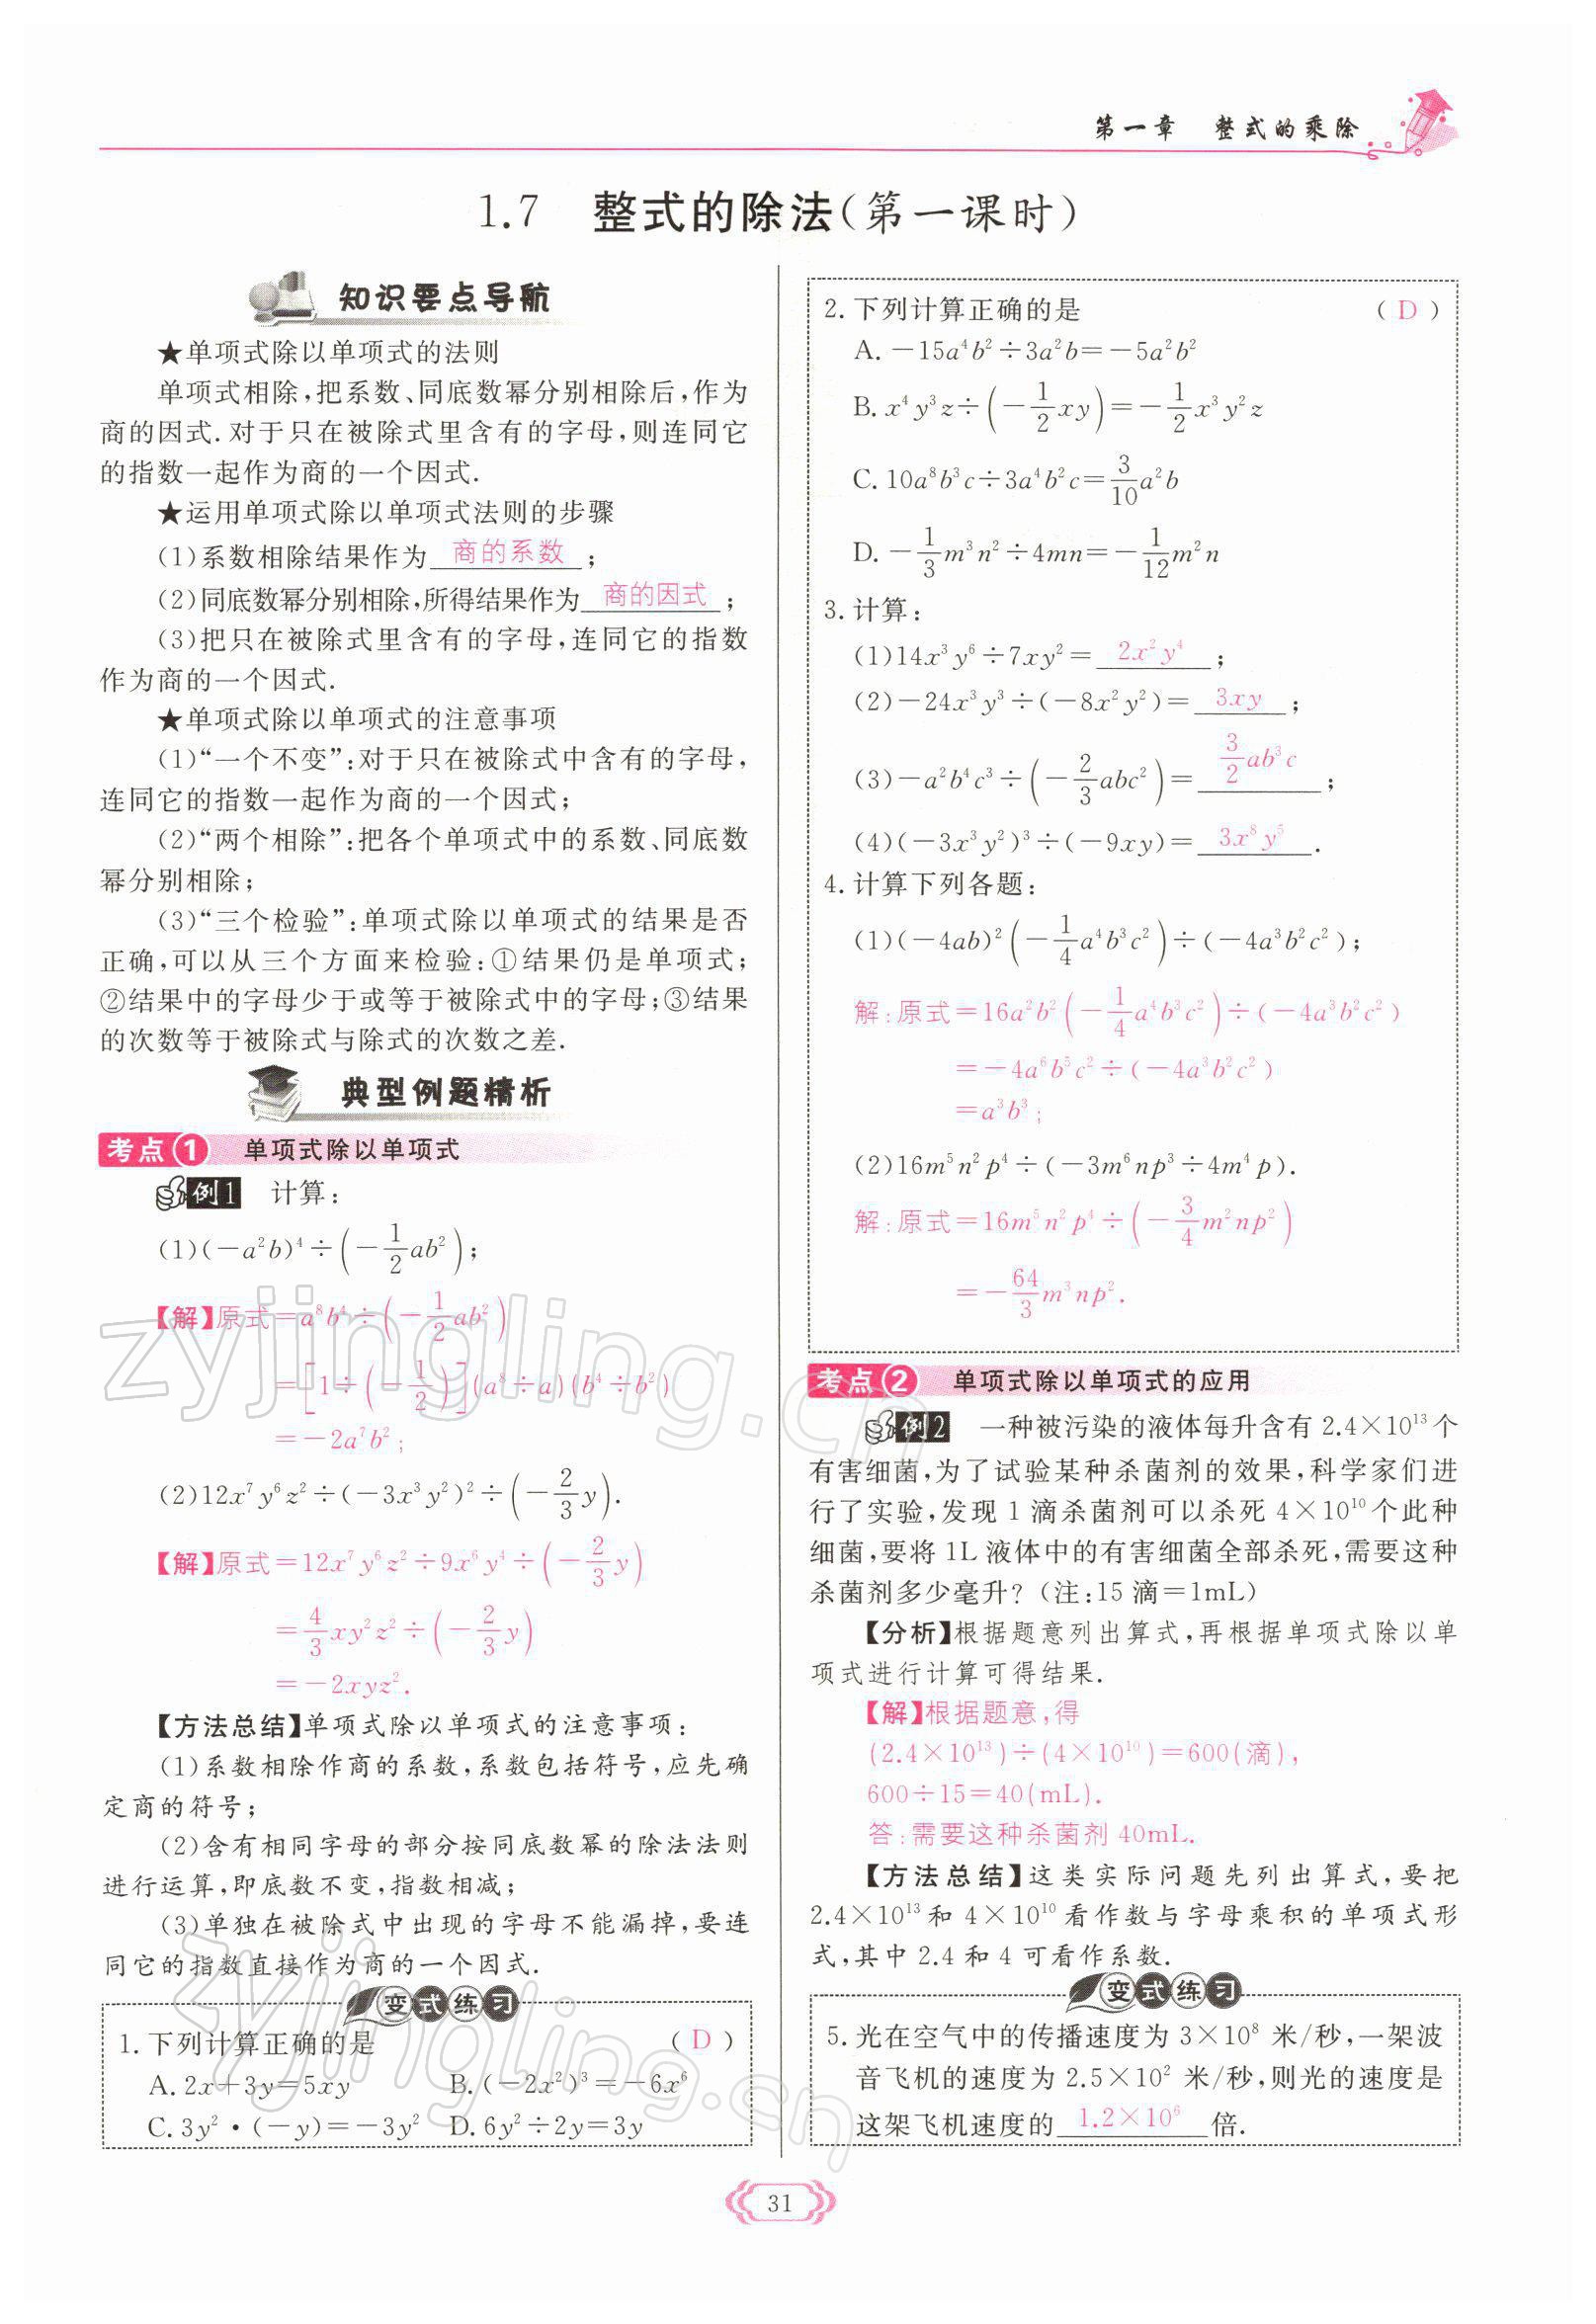 第一章 整式的乘除
1.7 整式的除法(第一课时)
知识要点导航
★单项式除以单项式的法则
单项式相除,把系数、同底数幂分别相除后,作为
商的因式.对于只在被除式里含有的字母,则连同它
的指数一起作为商的一个因式.
★运用单项式除以单项式法则的步骤
(1)系数相除结果作为 商的系数 ;
(2)同底数幂分别相除,所得结果作为 商的因式 ;
(3)把只在被除式里含有的字母,连同它的指数
作为商的一个因式.
★单项式除以单项式的注意事项
(1)“一个不变”:对于只在被除式中含有的字母,
连同它的指数一起作为商的一个因式;
(2)“两个相除”:把各个单项式中的系数、同底数
幂分别相除;
(3)“三个检验”:单项式除以单项式的结果是否
正确,可以从三个方面来检验:①结果仍是单项式;
②结果中的字母少于或等于被除式中的字母;③结果
的次数等于被除式与除式的次数之差.
典型例题精析
考点1 单项式除以单项式
例1 计算:
(1)(-a²b)⁴÷(-1/2 ab²);
【解】原式=a⁸b⁴÷(-1/2 ab²)
=[1÷(-1/2)](a⁸÷a)(b⁴÷b²)
=-2a⁷b²;
(2)12x⁷y⁶z²÷(-3x³y²)²÷(-2/3 y).
【解】原式=12x⁷y⁶z²÷9x⁶y⁴÷(-2/3 y)
=4/3 xy²z²÷(-2/3 y)
=-2xyz².
【方法总结】单项式除以单项式的注意事项:
(1)系数相除作商的系数,系数包括符号,应先确
定商的符号;
(2)含有相同字母的部分按同底数幂的除法法则
进行运算,即底数不变,指数相减;
(3)单独在被除式中出现的字母不能漏掉,要连
同它的指数直接作为商的一个因式.
变式练习
1.下列计算正确的是 ( D )
A.2x+3y=5xy B.(-2x²)³=-6x⁶
C.3y²·(-y)=-3y² D.6y²÷2y=3y
2.下列计算正确的是 ( D )
A.-15a⁴b²÷3a²b=-5a²b²
B.x⁴y³z÷(-1/2 xy)=-1/2 x³y²z
C.10a⁸b³c÷3a⁴b²c=3/10 a²b
D.-1/3 m³n²÷4mn=-1/12 m²n
3.计算:
(1)14x³y⁶÷7xy²= 2x²y⁴ ;
(2)-24x³y³÷(-8x²y²)= 3xy ;
(3)-a²b⁴c³÷(-2/3 abc²)= 3/2 ab³c ;
(4)(-3x³y²)³÷(-9xy)= 3x⁸y⁵ .
4.计算下列各题:
(1)(-4ab)²(-1/4 a⁴b³c²)÷(-4a³b²c²);
解:原式=16a²b²(-1/4 a⁴b³c²)÷(-4a³b²c²)
=-4a⁶b⁵c²÷(-4a³b²c²)
=a³b³;
(2)16m⁵n²p⁴÷(-3m⁶np³÷4m⁴p).
解:原式=16m⁵n²p⁴÷(-3/4 m²np²)
=-64/3 m³np².
考点2 单项式除以单项式的应用
例2 一种被污染的液体每升含有 2.4×10¹³个
有害细菌,为了试验某种杀菌剂的效果,科学家们进
行了实验,发现 1 滴杀菌剂可以杀死 4×10¹⁰个此种
细菌,要将 1L 液体中的有害细菌全部杀死,需要这种
杀菌剂多少毫升?(注:15 滴=1mL)
【分析】根据题意列出算式,再根据单项式除以单
项式进行计算可得结果.
【解】根据题意,得
(2.4×10¹³)÷(4×10¹⁰)=600(滴),
600÷15=40(mL).
答:需要这种杀菌剂 40mL.
【方法总结】这类实际问题先列出算式,要把
2.4×10¹³和 4×10¹⁰看作数与字母乘积的单项式形
式,其中 2.4 和 4 可看作系数.
变式练习
5.光在空气中的传播速度为 3×10⁸ 米/秒,一架波
音飞机的速度为 2.5×10² 米/秒,则光的速度是
这架飞机速度的 1.2×10⁶ 倍.
31
zyjingling.cn
zyjingling.cn